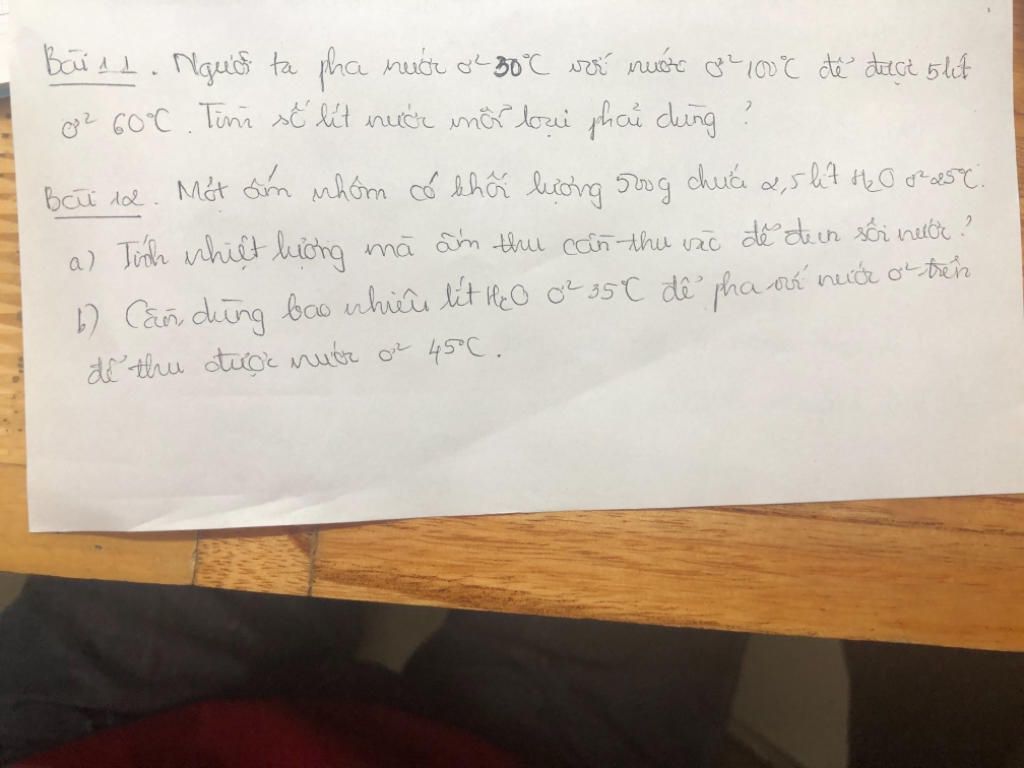 Bài 11. Người ta pha nước ở 30°C với nước ở 100°C để được 5 lít
ở 60°C. Tìm số lít nước mỗi loại phải dùng?
Bài 12. Một ấm nhôm có khối lượng 500g chứa 2,5 lít H₂O ở 25°C.
a) Tính nhiệt lượng mà ấm thu cần thu vào để đun sôi nước?
b) Cần dùng bao nhiêu lít H₂O ở 35°C để pha với nước ở trên
để thu được nước ở 45°C.